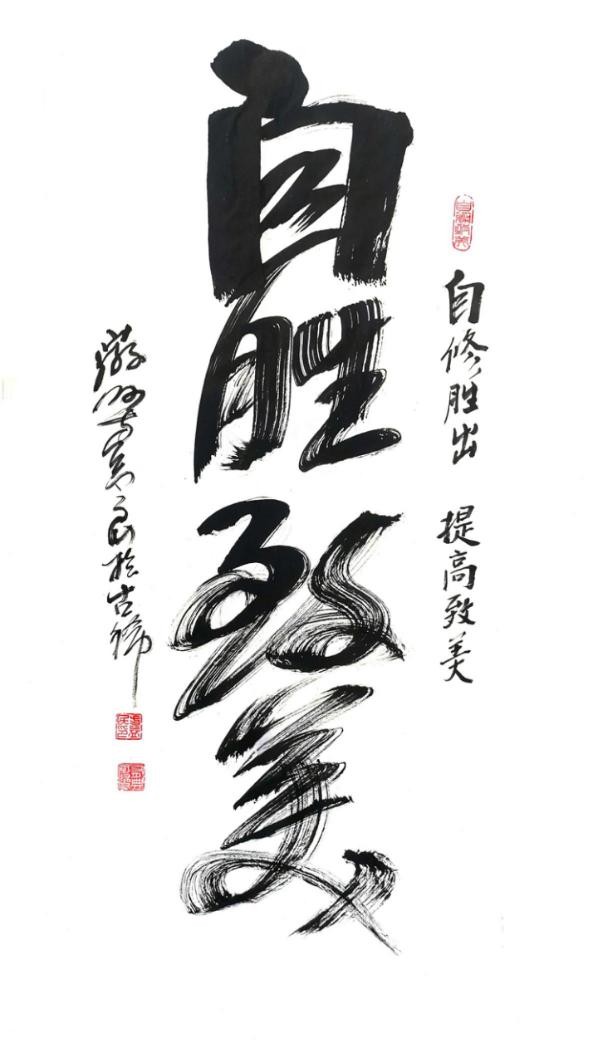 自修胜出 提高致美
自胜致美
於古稀